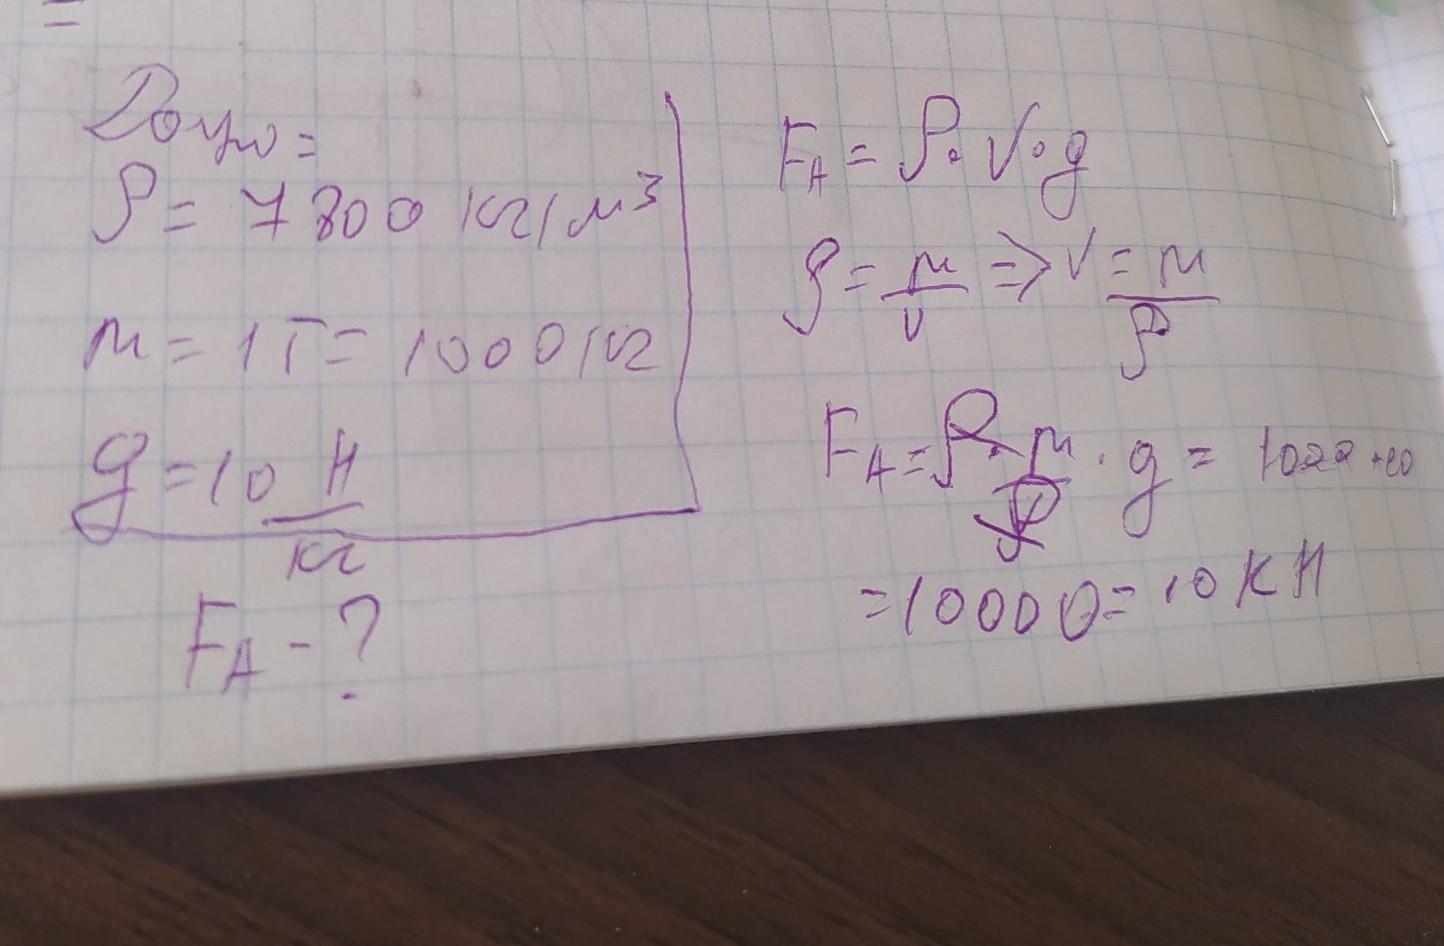 ρ = 7800 кг/м³
m = 1т = 1000 кг
g = 10 Н/кг
F_A - ?
F_A = ρ · V · g
ρ = m/V => V = m/ρ
F_A = ρ · m/ρ · g = 1000 · 10
= 10000 = 10 кН